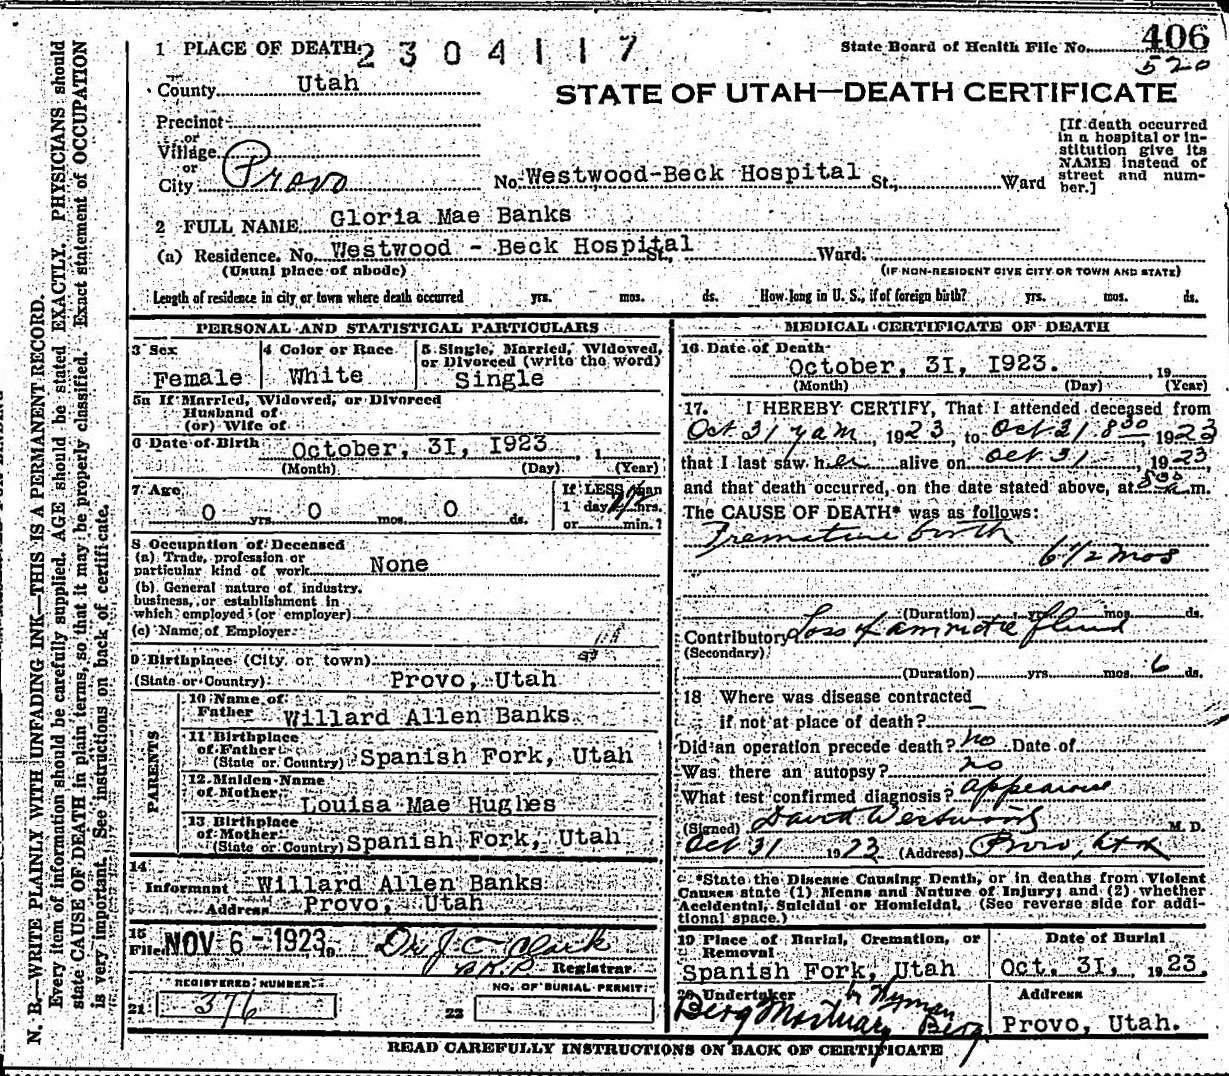 1 PLACE OF DEATH: 2 3 0 4 1 1 7
State Board of Health File No. 406
520
County Utah
STATE OF UTAH—DEATH CERTIFICATE
Precinct
or
Village
or
City Provo
No. Westwood-Beck Hospital St., Ward
[If death occurred
in a hospital or in-
stitution give its
NAME instead of
street and num-
ber.]
2 FULL NAME Gloria Mae Banks
(a) Residence. No. Westwood - Beck Hospital St., Ward.
(Usual place of abode) (IF NON-RESIDENT GIVE CITY OR TOWN AND STATE)
Length of residence in city or town where death occurred yrs. mos. ds. How long in U. S., if of foreign birth? yrs. mos. ds.
PERSONAL AND STATISTICAL PARTICULARS
3 Sex
Female
4 Color or Race
White
5 Single, Married, Widowed,
or Divorced (write the word)
Single
5a If Married, Widowed, or Divorced
Husband of
(or) Wife of
6 Date of Birth October, 31, 1923, 1
(Month) (Day) (Year)
7 Age
0 yrs. 0 mos. 0 ds.
If LESS than
1 day, hrs.
or min.?
8 Occupation of Deceased
(a) Trade, profession or
particular kind of work None
(b) General nature of industry,
business, or establishment in
which employed (or employer)
(c) Name of Employer
9 Birthplace (City or town)
(State or Country) Provo, Utah
PARENTS
10 Name of
Father Willard Allen Banks
11 Birthplace
of Father
(State or Country) Spanish Fork, Utah
12 Maiden Name
of Mother
Louisa Mae Hughes
13 Birthplace
of Mother
(State or Country) Spanish Fork, Utah
14
Informant Willard Allen Banks
Address Provo, Utah
15
Filed NOV 6 - 1923, 19 Dr J. C. Clark
Registrar
REGISTERED NUMBER
21 376
NO. OF BURIAL PERMIT
22
MEDICAL CERTIFICATE OF DEATH
16 Date of Death
October, 31, 1923. , 19
(Month) (Day) (Year)
17. I HEREBY CERTIFY, That I attended deceased from
Oct 31 7 am, 1923, to Oct 31 8 30, 1923
that I last saw her alive on Oct 31, 1923,
and that death occurred, on the date stated above, at m.
The CAUSE OF DEATH* was as follows:
Premature birth
6 1/2 mos
(Duration) yrs. mos. ds.
Contributory Loss of amniotic fluid
(Secondary)
(Duration) yrs. mos. 6 ds.
18 Where was disease contracted
if not at place of death?
Did an operation precede death? no Date of
Was there an autopsy? no
What test confirmed diagnosis? appearance
(Signed) David Westwood M. D.
Oct 31 1923 (Address) Provo, Utah
*State the Disease Causing Death, or in deaths from Violent
Causes state (1) Means and Nature of Injury; and (2) whether
Accidental, Suicidal or Homicidal. (See reverse side for addi-
tional space.)
19 Place of Burial, Cremation, or
Removal
Spanish Fork, Utah
Date of Burial
Oct. 31, 1923.
20 Undertaker
Berg Mortuary by Wyman Berg
Address
Provo, Utah.
READ CAREFULLY INSTRUCTIONS ON BACK OF CERTIFICATE
N. B.—WRITE PLAINLY WITH UNFADING INK—THIS IS A PERMANENT RECORD.
Every item of information should be carefully supplied. AGE should be stated EXACTLY. PHYSICIANS should
state CAUSE OF DEATH in plain terms, so that it may be properly classified. Exact statement of OCCUPATION
is very important. See instructions on back of certificate.